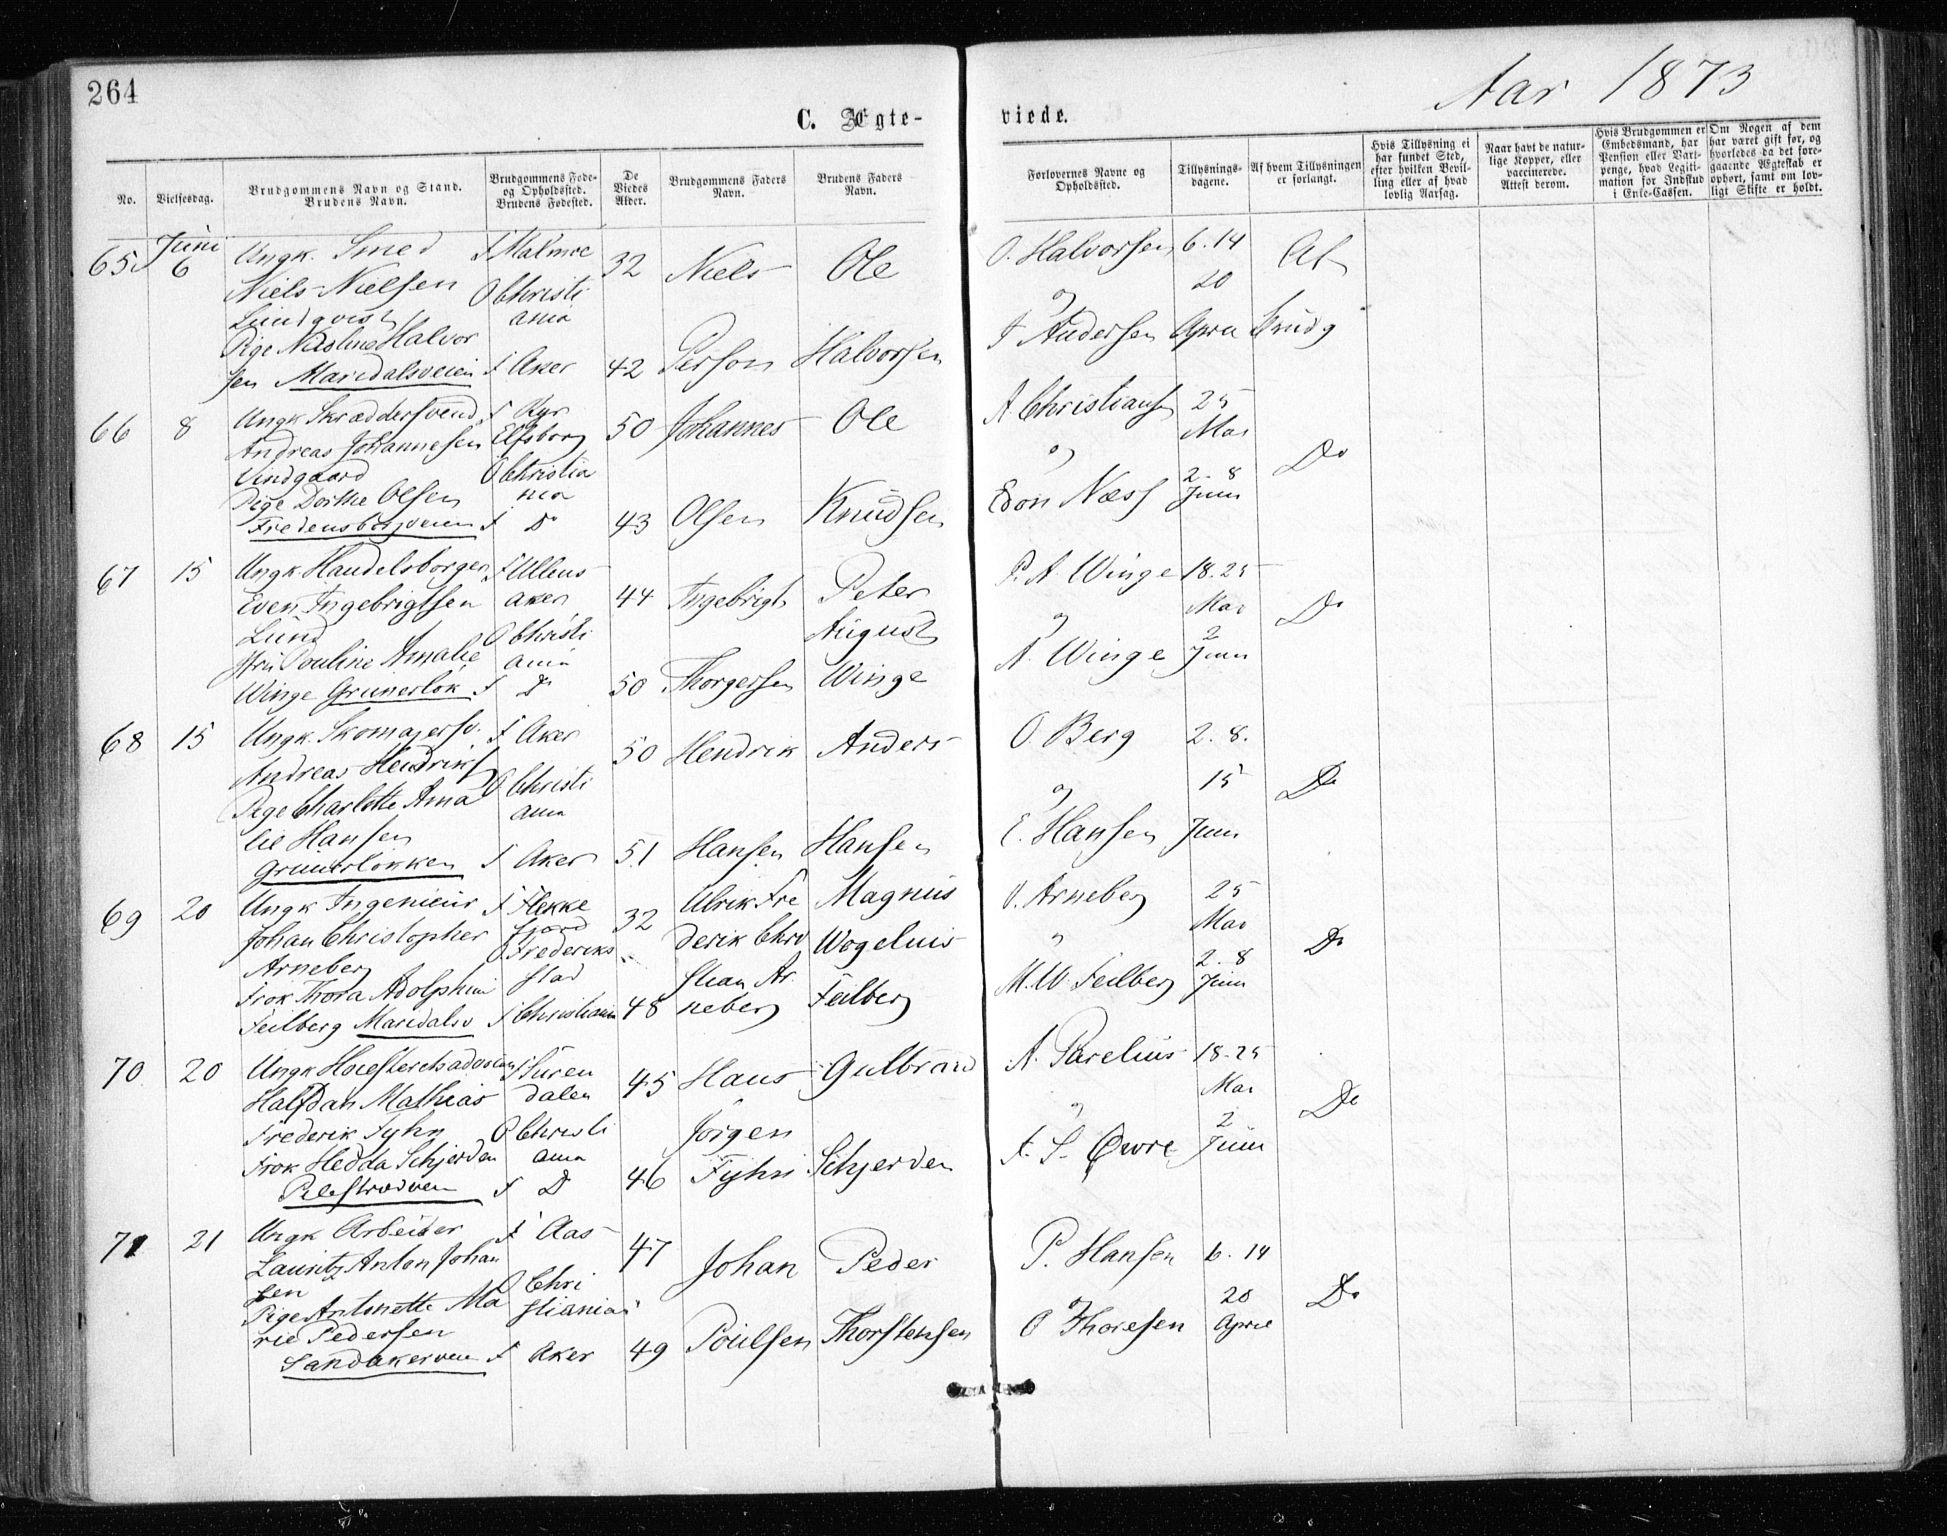 264
C. Ægte-
viede.
Aar 1873
No.
Vielsesdag.
Brudgommens Navn og Stand.
Brudens Navn.
BrudgommensFøde-
og Opholdssted.
Brudens Fødested.
De
Viedes
Alder.
Brudgommens Faders
Navn.
Brudens Faders
Navn.
Forlovernes Navne og
Opholdssted.
Tillysnings-
dagene.
Af hvem Tillysningen
er forlangt.
Hvis Tillysning ei
har fundet Sted,
efter hvilken Bevil-
ling eller af hvad
lovlig Aarsag.
Naar havt de natur-
lige Kopper, eller
vaccinerede.
Attest derom.
Hvis Brudgommen er
Embedsmand, har
Pension eller Vart-
penge, hvad Legiti-
mation for Indskud
i Enke-Cassen.
Om Nogen af dem
har været gift før, og
hvorledes da det fore-
gaaende Ægteskab er
ophørt, samt om lov-
ligt Skifte er holdt.
65 Juni 6
Ungk. Smed
Niels Nielsen
Lundqvist
Pige Halvor
sen Maridalsveien
f Malmøe
O Christi
ania
f Aker
32
42
Niels
Person
Ole
Halvorsen
O. Halvorsen
og
F Andersen
6. 14
20
April
Af
Brudg
66 8
Ungk Skræddersvend
Andreas Johannesen
Lindgaard
Pige Dorthe Olsen
Fredensborgveien
f
Elfsborg
O Christia
nia
f Do
50
43
Johannes
Olsen
Ole
Knudsen
A Christiansen
og
Næss
25
Mai
2. 8
Juni
Do
67 15
Ungk. Handelsborger
Even Ingebrigtsen
Lund
Pouline Amalie
Winge Grünerløk
f Ullens
aker
O Christi
ania
f Do
44
50
Ingebrigt
Thorgersen
Peter
August
Winge
P. A. Winge
og
A. Winge
18. 25
Mai
2
Juni
Do
68 15
Ungk. Skomagersv.
Andreas Hendriks
Pige Charlotte Ama
lie Hansen
Grünerløkken
f Aker
O Christi
ania
f Aker
50
51
Hendrik
Hansen
Anders
Hansen
O. Berg
og
E. Hansen
2. 8.
15
Juni
Do
69 20
Ungk Ingeniør
Johan Christopher
Arneberg
Frøk Thora Adolphine
Feilberg Maridalsv
f Flekke
fjord
O Frederiks
stad
f Christiania
32
48
Ulrik Fre
derik Chri
stian Ar
neberg
Magnus
Wogelius
Feilberg
Arneberg
M. W. Feilberg
25
Mai
2. 8
Juni
Do
70 20
Ungk Høiesteretsadvocat
Halfdan Mathias
Frederik Fyhn
Frøk Hedda Schjerden
Pilestrædveien
f Suren
dalen
O Christi
ania
f D
45
46
Hans
Jörgen
Fyhn
Gulbrand
Schjerden
A. Parelius
og
A. S. Øvre
18. 25
Mai
2
Juni
Do
71 21
Ungk Arbeider
Lauritz Anton Johan
sen
Pige Antonette Ma
rie Pedersen
Sandakerveien
f Aas
O Chri
stiania
f Aker
47
49
Johan
Poulsen
Peder
Thorstensen
P. Hansen
og
O Thoresen
6. 14
20
April
Do